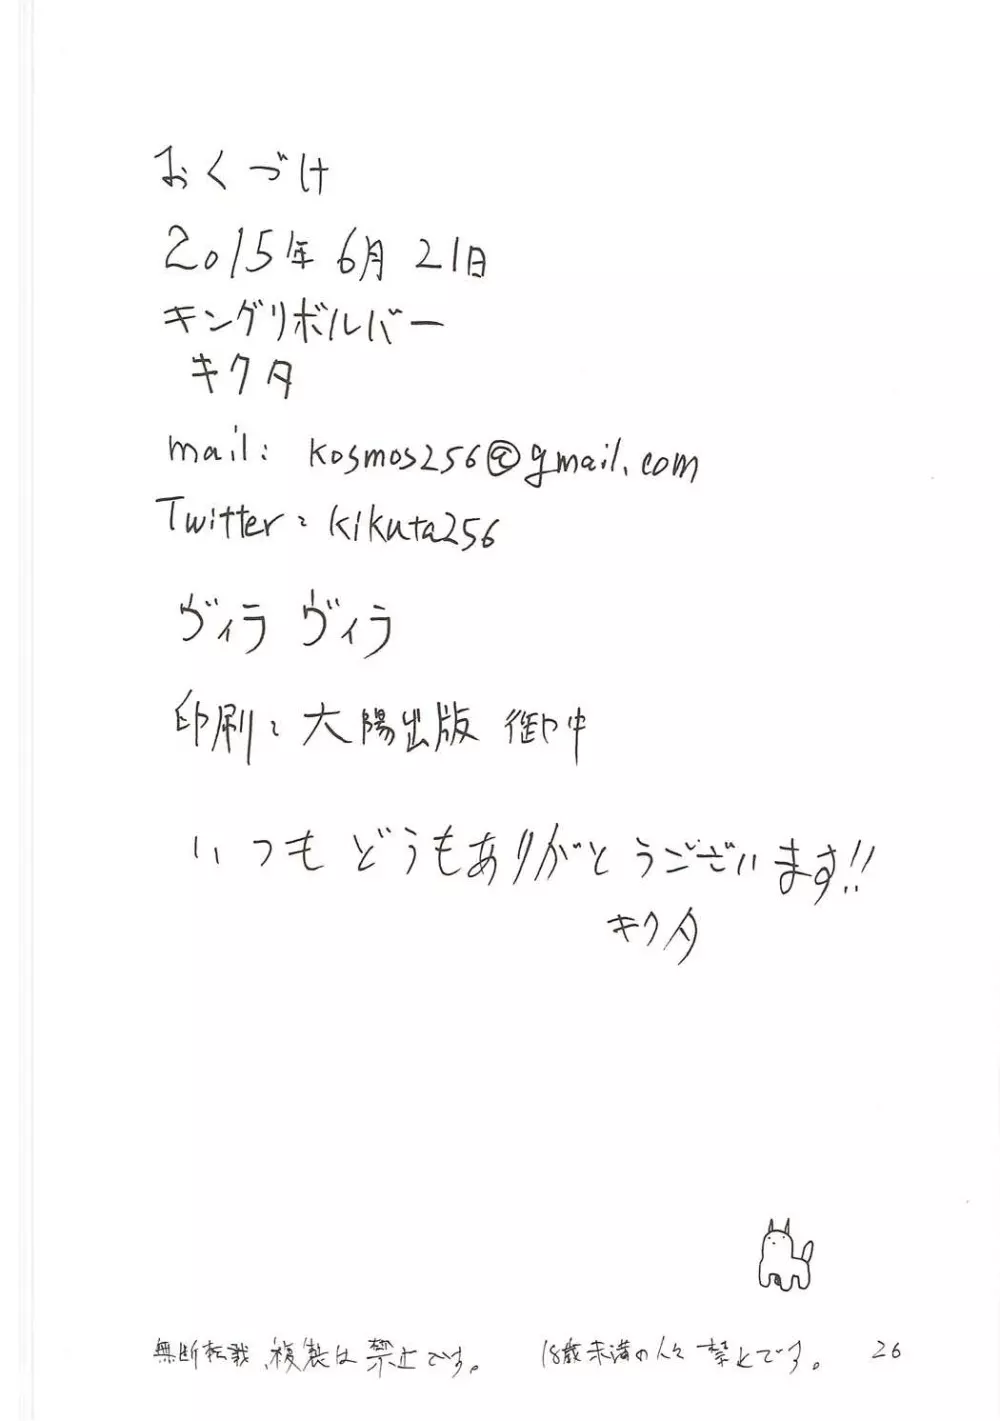 おくづけ
2015年6月21日
キングリボルバー
キクタ
mail: kosmos256@gmail.com
Twitter: kikuta256
ヴィラ ヴィラ
印刷: 大陽出版 御中
いつも どうもありがとうございます!!
キクタ
無断転載、複製は禁止です。 18歳未満の人々禁止です。 26